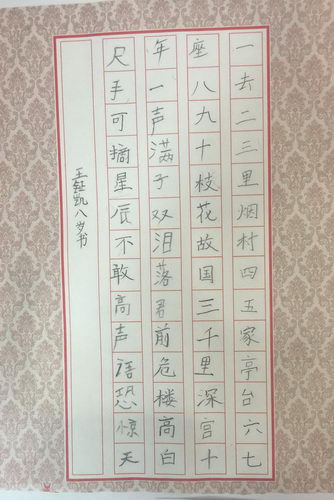 一去二三里烟村四五家亭台六七
座八九十枝花故国三千里深宫十
年一声满子双泪落君前危楼高白
尺手可摘星辰不敢高声语恐惊天
王钲凯八岁书